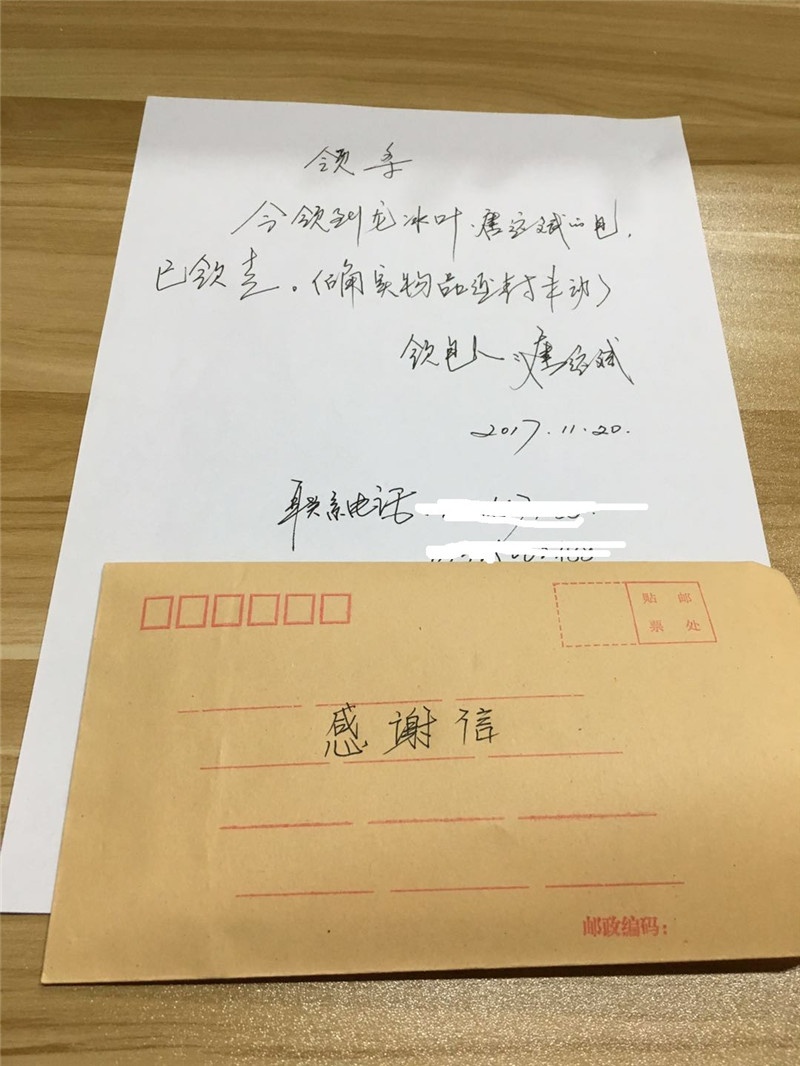 领条
今领到龙冰叶、唐 斌的包，
已领走。 确实物品还 未动
领包人：唐 斌
2017.11.20.
联系电话
贴 邮
票 处
感谢信
邮政编码：